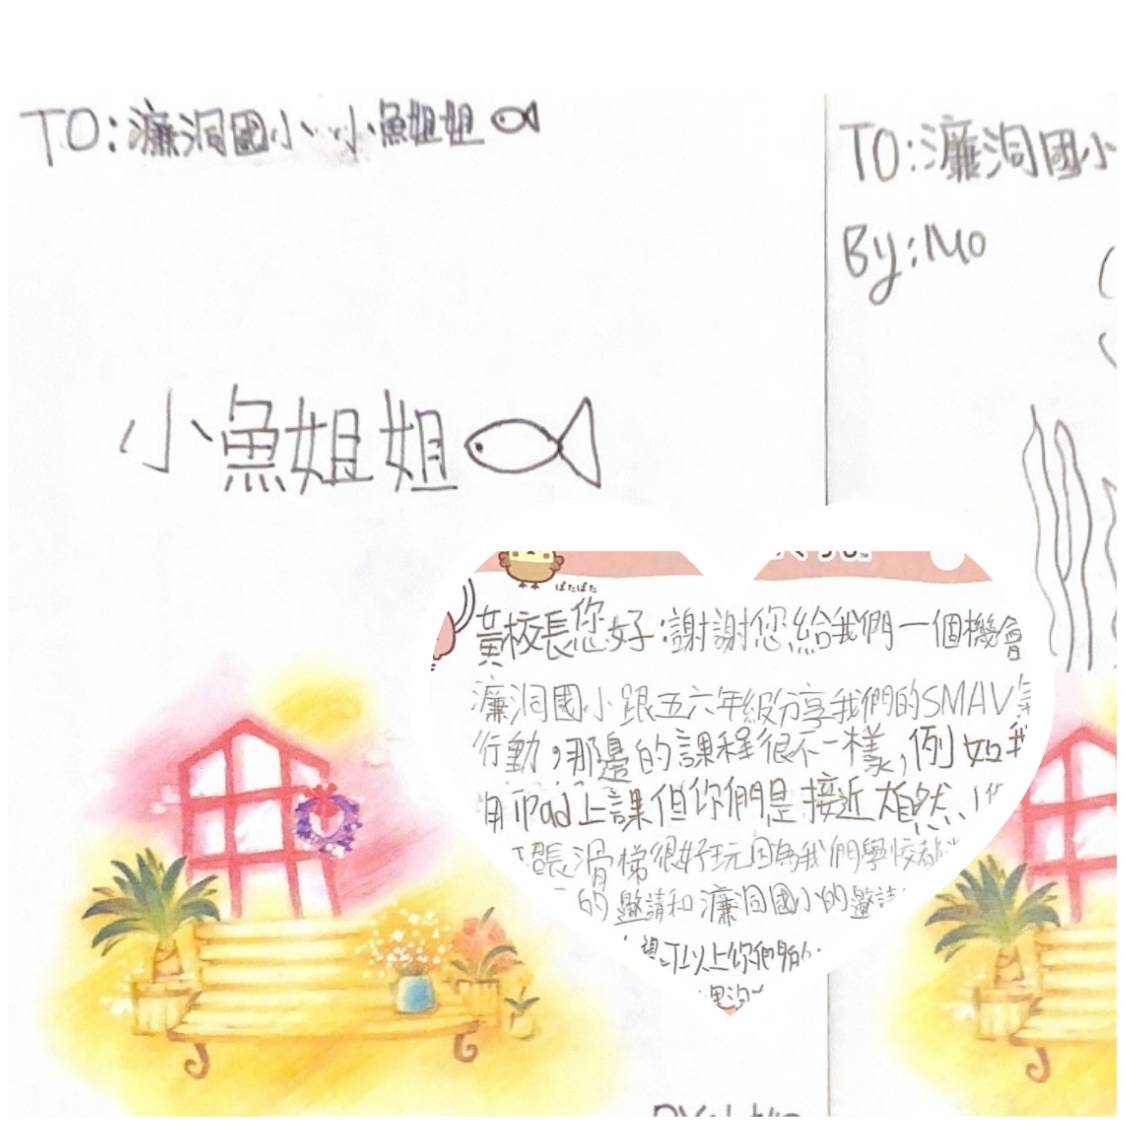 TO:濂洞國小 小魚姐姐
小魚姐姐
TO:濂洞國小
By:Mo
ぱたぱた
黃校長您好:謝謝您給我們一個機會
濂洞國小跟五六年級分享我們的SMAV
行動,那邊的課程很不一樣,例如我
用iPad上課但你們是接近大自然、
滑梯很好玩因為我們學校都
的邀請和濂洞國小的邀請
可以上你們